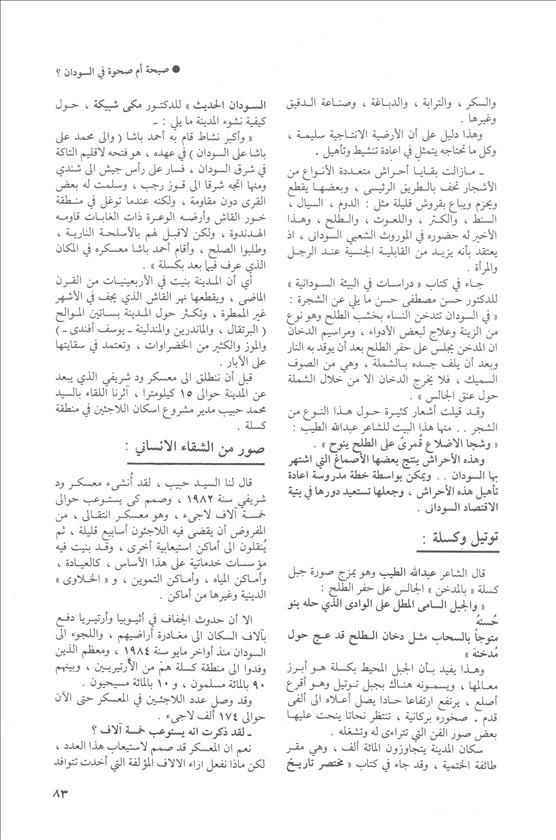 ● صيحة أم صحوة في السودان ؟
والسكر ، والترابة ، والدباغة ، وصناعة الدقيق
وغيرها .
وهذا دليل على أن الأرضية الانتاجية سليمة ،
وكل ما تحتاجه يتمثل في اعادة تنشيط وتأهيل .
ـ مازالت بقايا أحراش متعددة الأنواع من
الأشجار تحف بالطريق الرئيسى ، وبعضها يقطع
ويحزم ويباع بقروش قليلة مثل : الدوم ، السيال ،
السنط ، والكتر ، واللعوت ، والطلح ، وهذا
الأخير له حضوره في الموروث الشعبي السودانى ، اذ
يعتقد بأنه يزيد من القابلية الجنسية عند الرجل
والمرأة .
جاء في كتاب « دراسات في البيئة السودانية »
للدكتور حسن مصطفى حسن ما يلي عن الشجرة :
« في السودان تتدخن النساء بخشب الطلح وهو نوع
من الزينة وعلاج لبعض الأدواء ، ومراسيم الدخان
ان المدخن يجلس على حفر الطلح بعد أن يوقد به النار
وبعد أن يلف جسده بالشملة ، وهي من الصوف
السميك ، فلا يخرج الدخان الا من خلال الشملة
حول عنق الجالس » .
وقد قيلت أشعار كثيرة حول هذا النوع من
الشجر . . منها هذا البيت للشاعر عبدالله الطيب :
« وشجا الاضلاع قُمرىُ على الطلح ينوح » .
وهذه الأحراش ينتج بعضها الأصماغ التي اشتهر
بها السودان . . ويمكن بواسطة خطة مدروسة اعادة
تأهيل هذه الأحراش ، وجعلها تستعيد دورها في بنية
الاقتصاد السودانى .
توتيل وكسلة :
قال الشاعر عبدالله الطيب وهو يمزج صورة جبل
كسلة « بالمدخن » الجالس على حفر الطلح :
« والجبل السامى المطل على الوادى الذي حله بنو
حُسنهُ
متوجاً بالسحاب مثل دخان الطلح قد عج حول
مُدخنه »
وهذا يفيد بأن الجبل المحيط بكسلة هو أبرز
معالمها ، ويسمونه هناك بجبل توتيل وهو أقرع
أصلع ، يرتفع ارتفاعا حادا يصل أعلاه الى ألفى
قدم . صخوره بركانية ، تنتظر نحاتا ينحت عليها
بعض صور الفن التي تتراءى له وتشغله .
سكان المدينة يتجاوزون المائة ألف ، وهي مقر
طائفة الختمية ، وقد جاء في كتاب « مختصر تاريخ
السودان الحديث » للدكتور مكى شبيكة ، حول
كيفية نشوء المدينة ما يلي : ـ
« وأكبر نشاط قام به أحمد باشا ( والى محمد على
باشا على السودان ) في عهده ، هو فتحه لاقليم التاكة
في شرق السودان ، فسار على رأس جيش الى شندي
ومنها اتجه شرقا الى قوز رجب ، وسلمت له بعض
القرى دون مقاومة ، ولكنه عندما توغل في منطقة
خور القاش وأرضه الوعرة ذات الغابات قاومه
الهدندوة ، ولكن لاقبل لهم بالأسلحة النارية ،
وطلبوا الصلح ، وأقام أحمد باشا معسكره في المكان
الذي عرف فيما بعد بكسلة » .
أي أن المدينة بنيت في الأربعينيات من القرن
الماضى ، ويقطعها نهر القاش الذي يجف في الأشهر
غير الممطرة ، وتكثر حول المدينة بساتين الموالح
( البرتقال ، والماندرين والمندلينة ـ يوسف أفندى ـ )
والموز والكثير من الخضراوات ، وتعتمد في سقايتها
على الآبار .
قبل أن ننطلق الى معسكر ود شريفي الذي يبعد
عن المدينة حوالى ١٥ كيلومترا ، آثرنا اللقاء بالسيد
محمد حبيب مدير مشروع اسكان اللاجئين في منطقة
كسلة .
صور من الشقاء الانساني :
قال لنا السيد حبيب ، لقد أُنشىء معسكر ود
شريفي سنة ١٩٨٢ ، وصمم كى يستوعب حوالى
خمسة آلاف لاجىء ، وهو معسكر انتقالى ، من
المفروض أن يقضى فيه اللاجئون أسابيع قليلة ، ثم
يُنقلون الى أماكن استيعابية أخرى ، وقد بنيت فيه
مؤسسات خدماتية على هذا الأساس ، كالعيادة ،
وأماكن المياه ، وأماكن التموين ، و « الخلاوى »
الدينية وغيرها من أماكن .
الا أن حدوث الجفاف في أثيوبيا وأرتيريا دفع
بآلاف السكان الى مغادرة أراضيهم ، واللجوء الى
السودان منذ أواخر مايو سنة ١٩٨٤ ، ومعظم الذين
وفدوا الى منطقة كسلة هم من الأرتيريين ، وبينهم
٩٠ بالمائة مسلمون ، و ١٠ بالمائة مسيحيون .
وقد وصل عدد اللاجئين في المعسكر حتى الآن
حوالى ١٧٤ ألف لاجىء .
ـ لقد ذكرت انه يستوعب خمسة آلاف ؟
نعم ان المعسكر قد صمم لاستيعاب هذا العدد ،
لكن ماذا نفعل ازاء الالاف المؤلفة التي أخدت تتوافد
٨٣